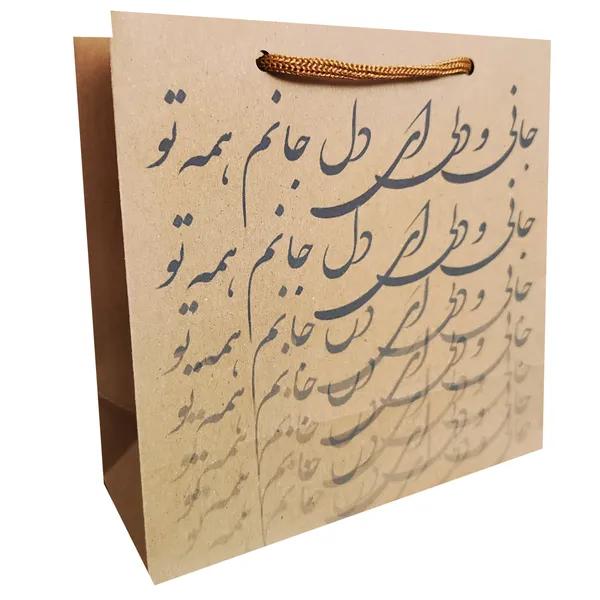 جانی و دلی ای دل جانم همه تو
جانی و دلی ای دل جانم همه تو
جانی و دلی ای دل جانم همه تو
جانی و دلی ای دل جانم همه تو
جانی و دلی ای دل جانم همه تو
جانم همه تو
جانم همه تو